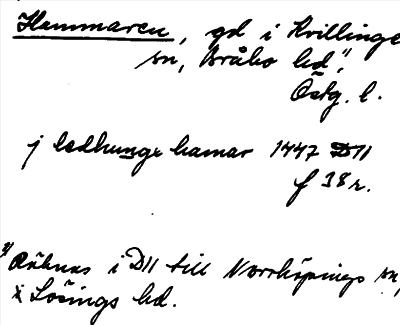 Hemmaren, gd i Kvillinge
sn, Bråbo hd,¹⁾
Östg. l.
j ledhunge hamar 1447 D11
f 38 r.
¹⁾ Räknas i D11 till Norrköpings sn,
i Lösings hd.